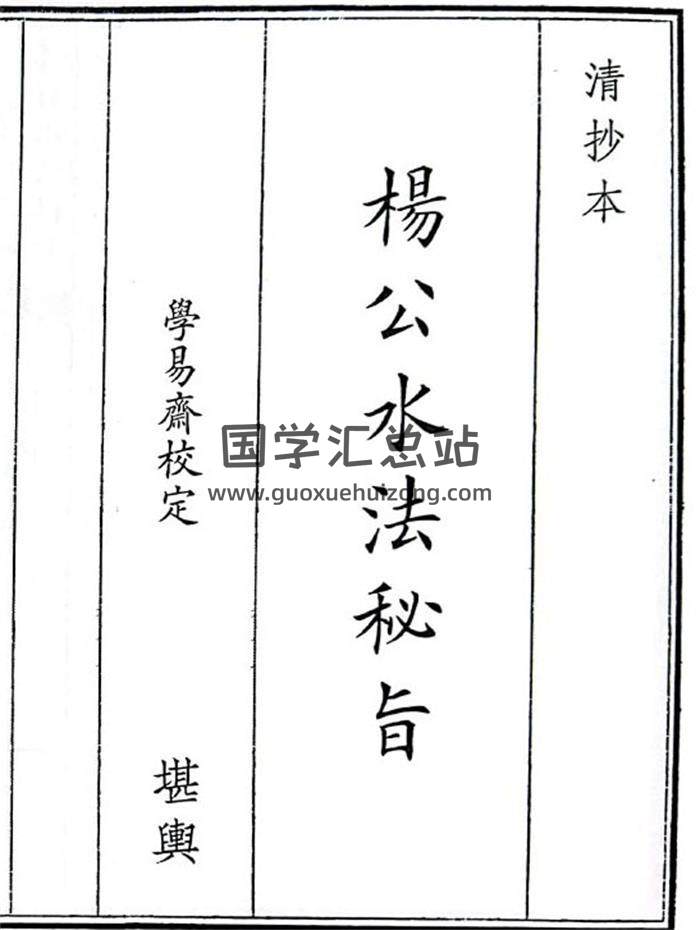 清抄本
楊公水法秘旨
學易齋校定
堪輿
国学汇总站
www.guoxuehuizong.com